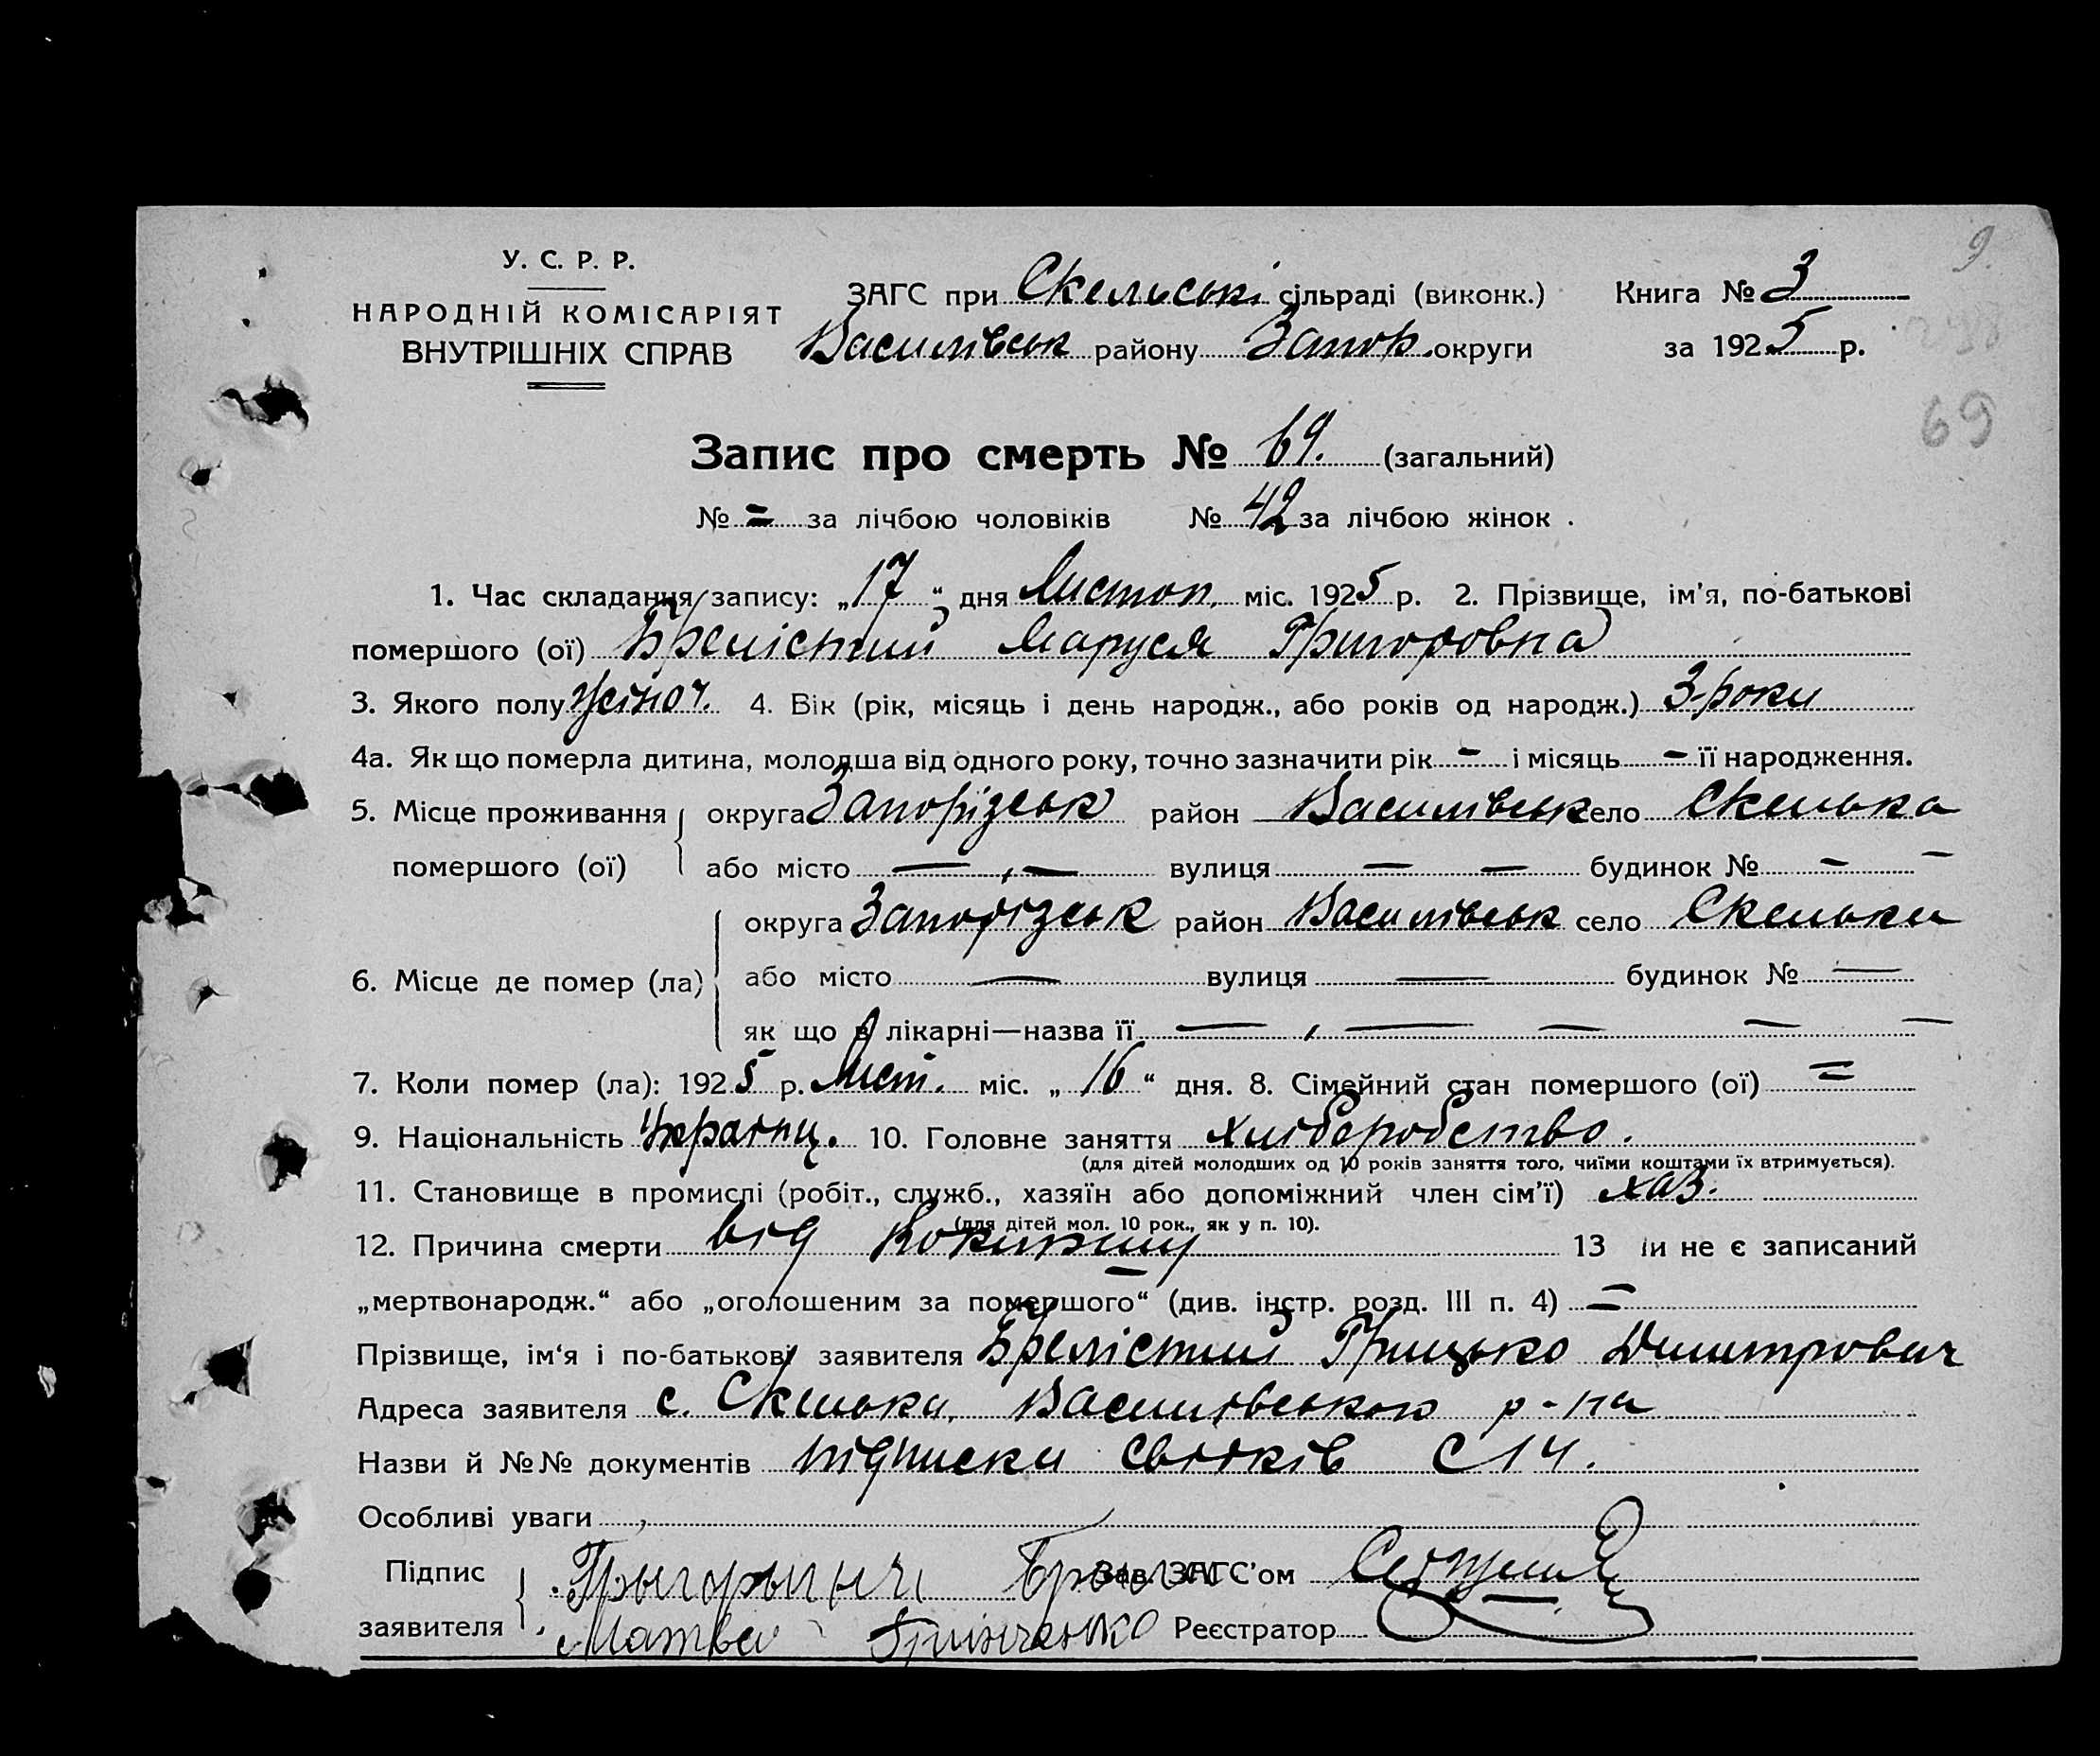 9.
У. С. Р. Р.
НАРОДНІЙ КОМІСАРІЯТ
ВНУТРІШНІХ СПРАВ
ЗАГС при Скельські сільраді (виконк.)
Василівськ району Запор. округи
Книга № 3
за 1925 р.
69
Запис про смерть № 69. (загальний)
№ = за лічбою чоловіків № 42 за лічбою жінок .
1. Час складання запису: „17“ дня Листоп. міс. 1925 р. 2. Прізвище, ім'я, по-батькові
помершого (ої) Маруся Григоровна
3. Якого полу жіноч. 4. Вік (рік, місяць і день народж., або років од народж.) 3 роки
4а. Як що померла дитина, молодша від одного року, точно зазначити рік - і місяць - її народження.
5. Місце проживання округа Запорізськ район Василівськ село Скелька
помершого (ої) або місто — , — вулиця — — будинок № - -
округа Запорізськ район Василівськ село Скельки
6. Місце де помер (ла) або місто — вулиця — будинок № —
як що в лікарні—назва її — , — — — —
7. Коли помер (ла): 1925 р. Лист. міс. „16“ дня. 8. Сімейний стан помершого (ої) =
9. Національність Украінц. 10. Головне заняття хліборобство.
(для дітей молодших од 10 років заняття того, чиїми коштами їх втримується).
11. Становище в промислі (робіт., служб., хазяїн або допоміжний член сім'ї) хаз.
(для дітей мол. 10 рок., як у п. 10).
12. Причина смерти від 13 и не є записаний
„мертвонародж.“ або „оголошеним за помершого“ (див. інстр. розд. III п. 4) =
Прізвище, ім'я і по-батькові заявителя Грицько Дмитрович
Адреса заявителя с. Скелька, Василівського р-на
Назви й №№ документів підписки свідків С 14.
Особливі уваги
Підпис Зав. ЗАГС'ом
заявителя Матвей Грінченко Реєстратор